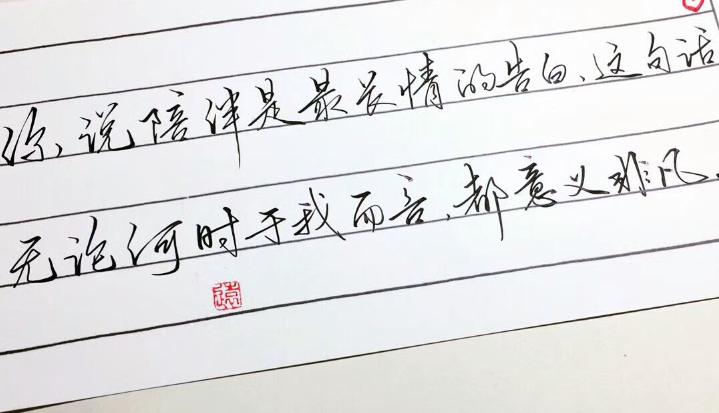 你,说陪伴是最长情的告白、这句话
无论何时于我而言,都意义非凡.